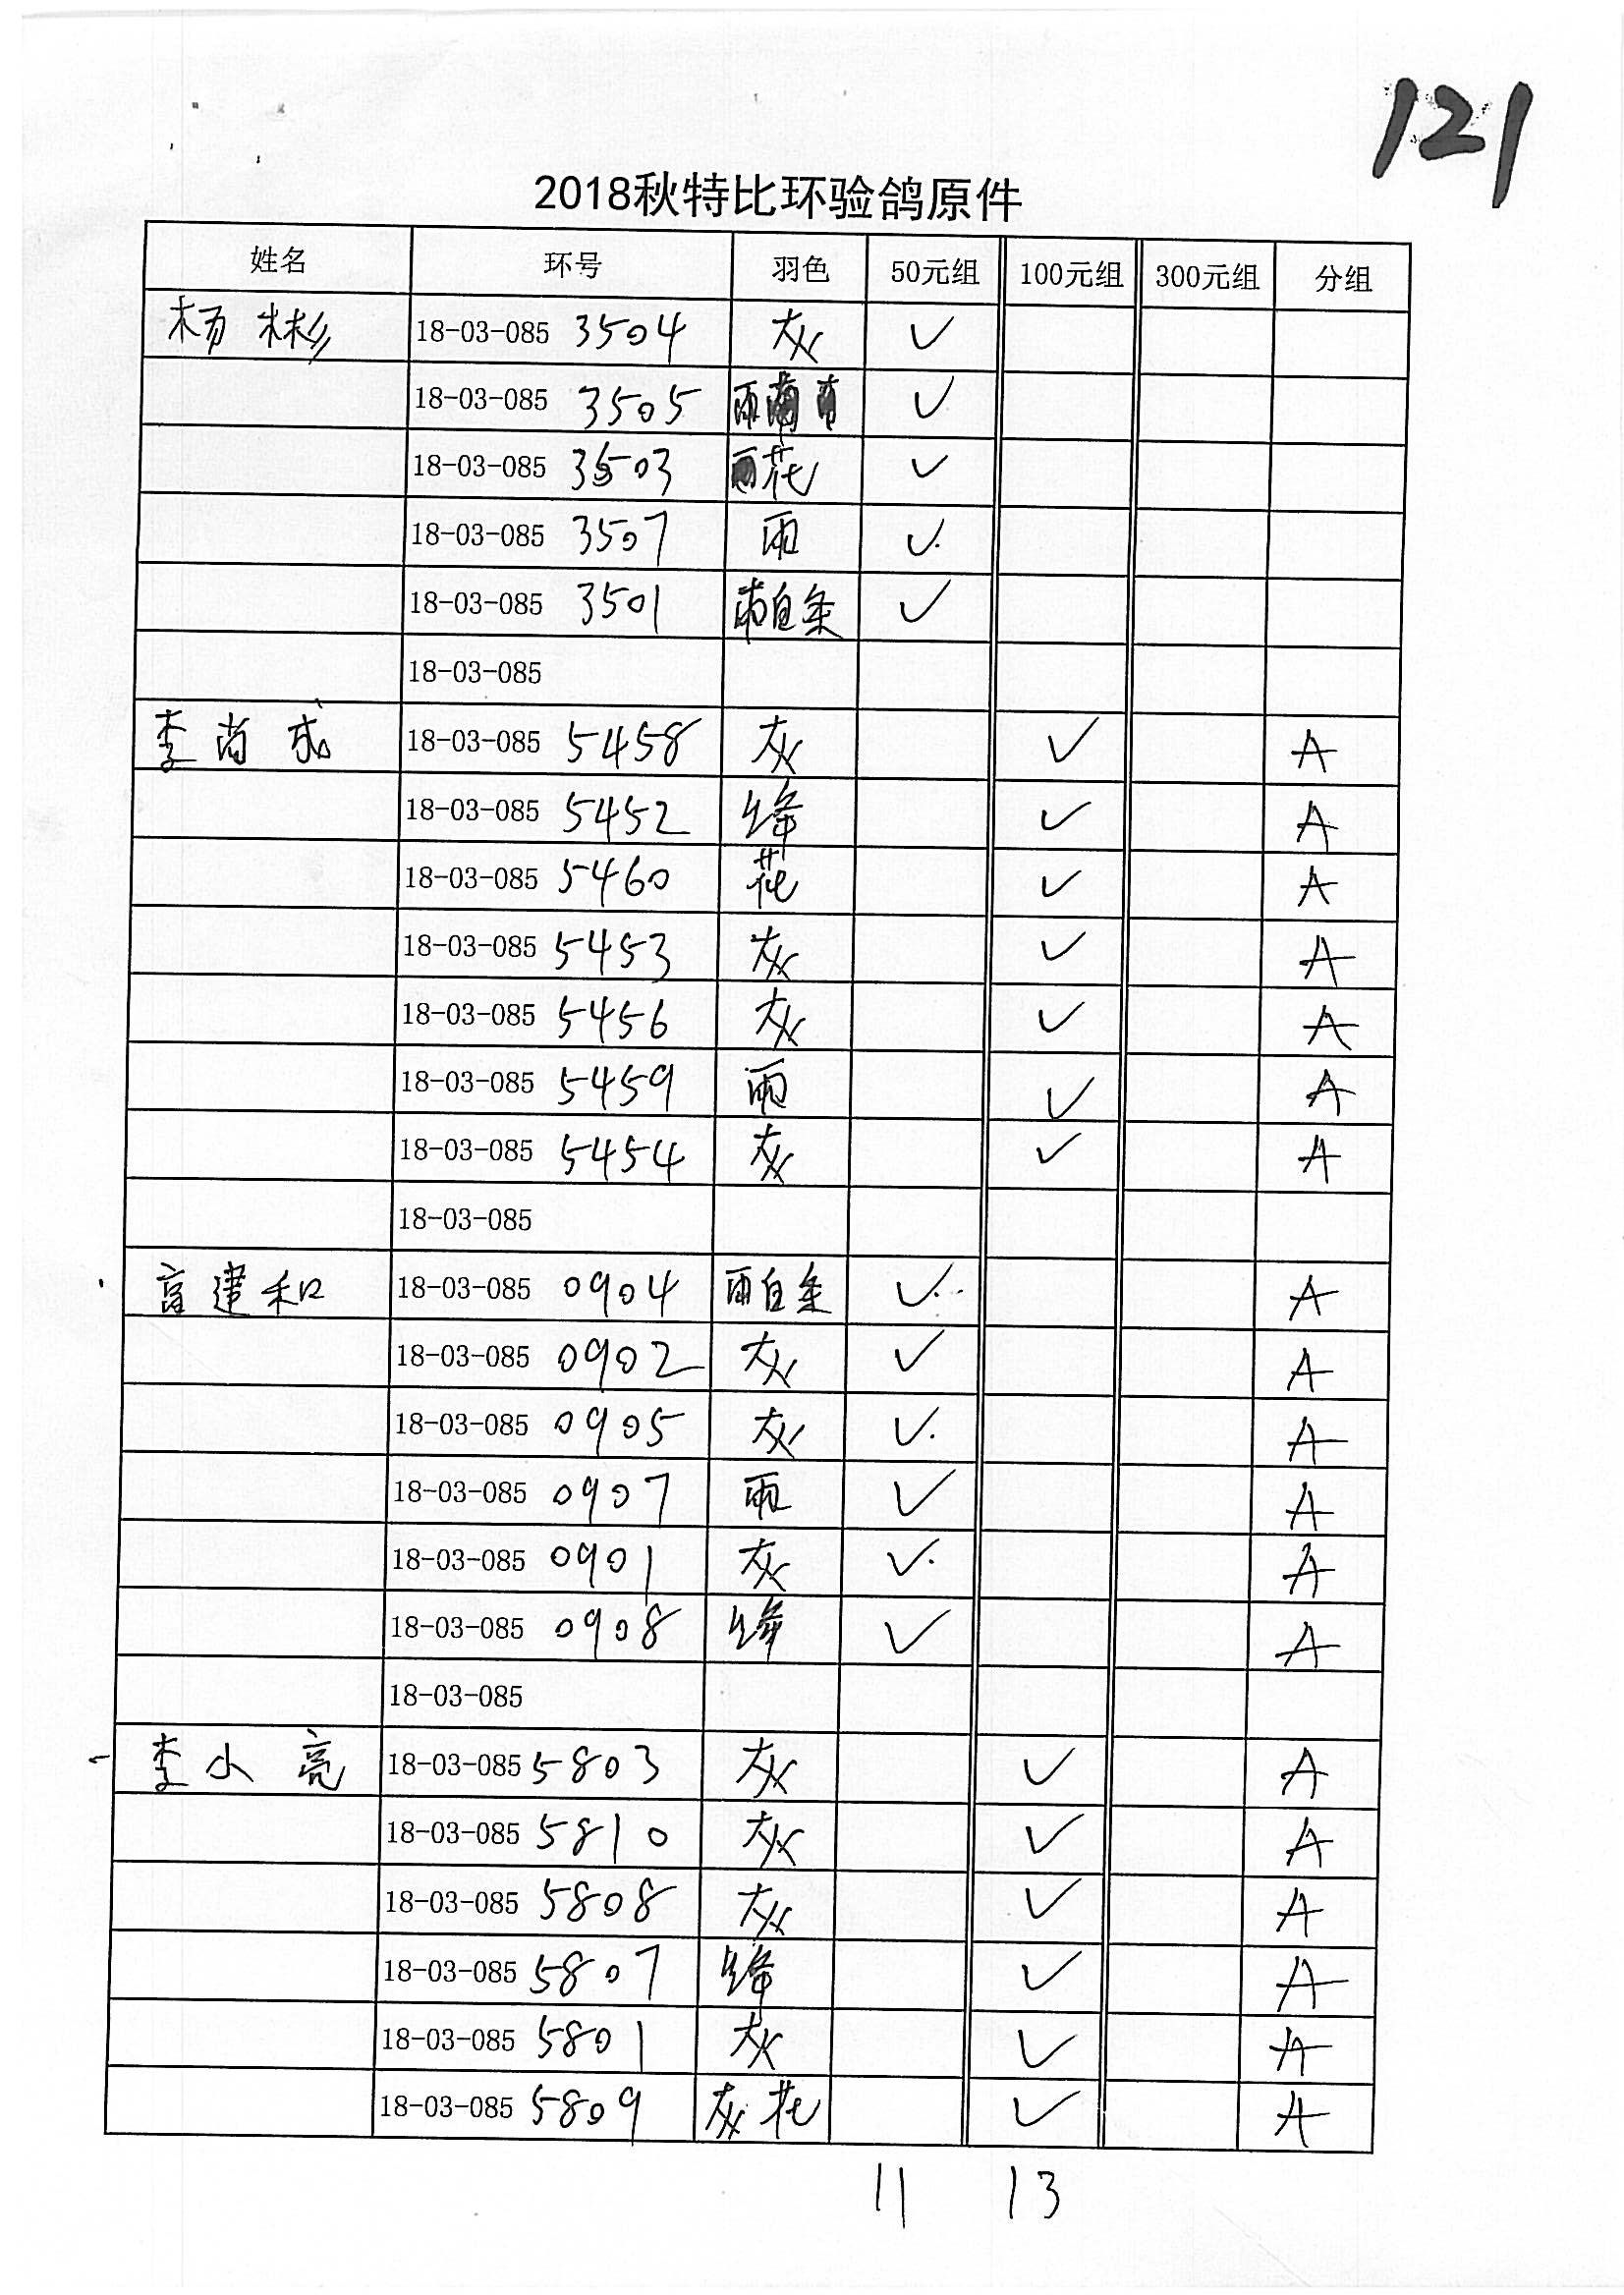 121
2018秋特比环验鸽原件
姓名 环号 羽色 50元组 100元组 300元组 分组
杨彬彬 18-03-085 3504 灰 ✓
18-03-085 3505 ✓
18-03-085 3503 雨花 ✓
18-03-085 3507 雨 ✓
18-03-085 3501 雨白条 ✓
18-03-085
李尚成 18-03-085 5458 灰 ✓ A
18-03-085 5452 绛 ✓ A
18-03-085 5460 花 ✓ A
18-03-085 5453 灰 ✓ A
18-03-085 5456 灰 ✓ A
18-03-085 5459 雨 ✓ A
18-03-085 5454 灰 ✓ A
18-03-085
高建和 18-03-085 0904 雨白条 ✓ A
18-03-085 0902 灰 ✓ A
18-03-085 0905 灰 ✓ A
18-03-085 0907 雨 ✓ A
18-03-085 0901 灰 ✓ A
18-03-085 0908 绛 ✓ A
18-03-085
李小亮 18-03-085 5803 灰 ✓ A
18-03-085 5810 灰 ✓ A
18-03-085 5808 灰 ✓ A
18-03-085 5807 绛 ✓ A
18-03-085 5801 灰 ✓ A
18-03-085 5809 灰花 ✓ A
11 13